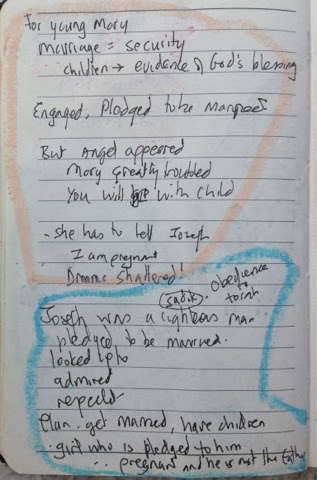 For young Mary
marriage = security
children → evidence of God's blessing
Engaged, Pledged to be Married
But Angel appeared
Mary greatly troubled
You will be with child
- She has to tell Joseph
I am pregnant
Dreams shattered!
(sadik) . Obedience to torah
Joseph was a righteous man.
pledged to be married.
looked up to
admired
respected
Plan - get married, have children
. girl who is pledged to him
.. pregnant and he is not the father